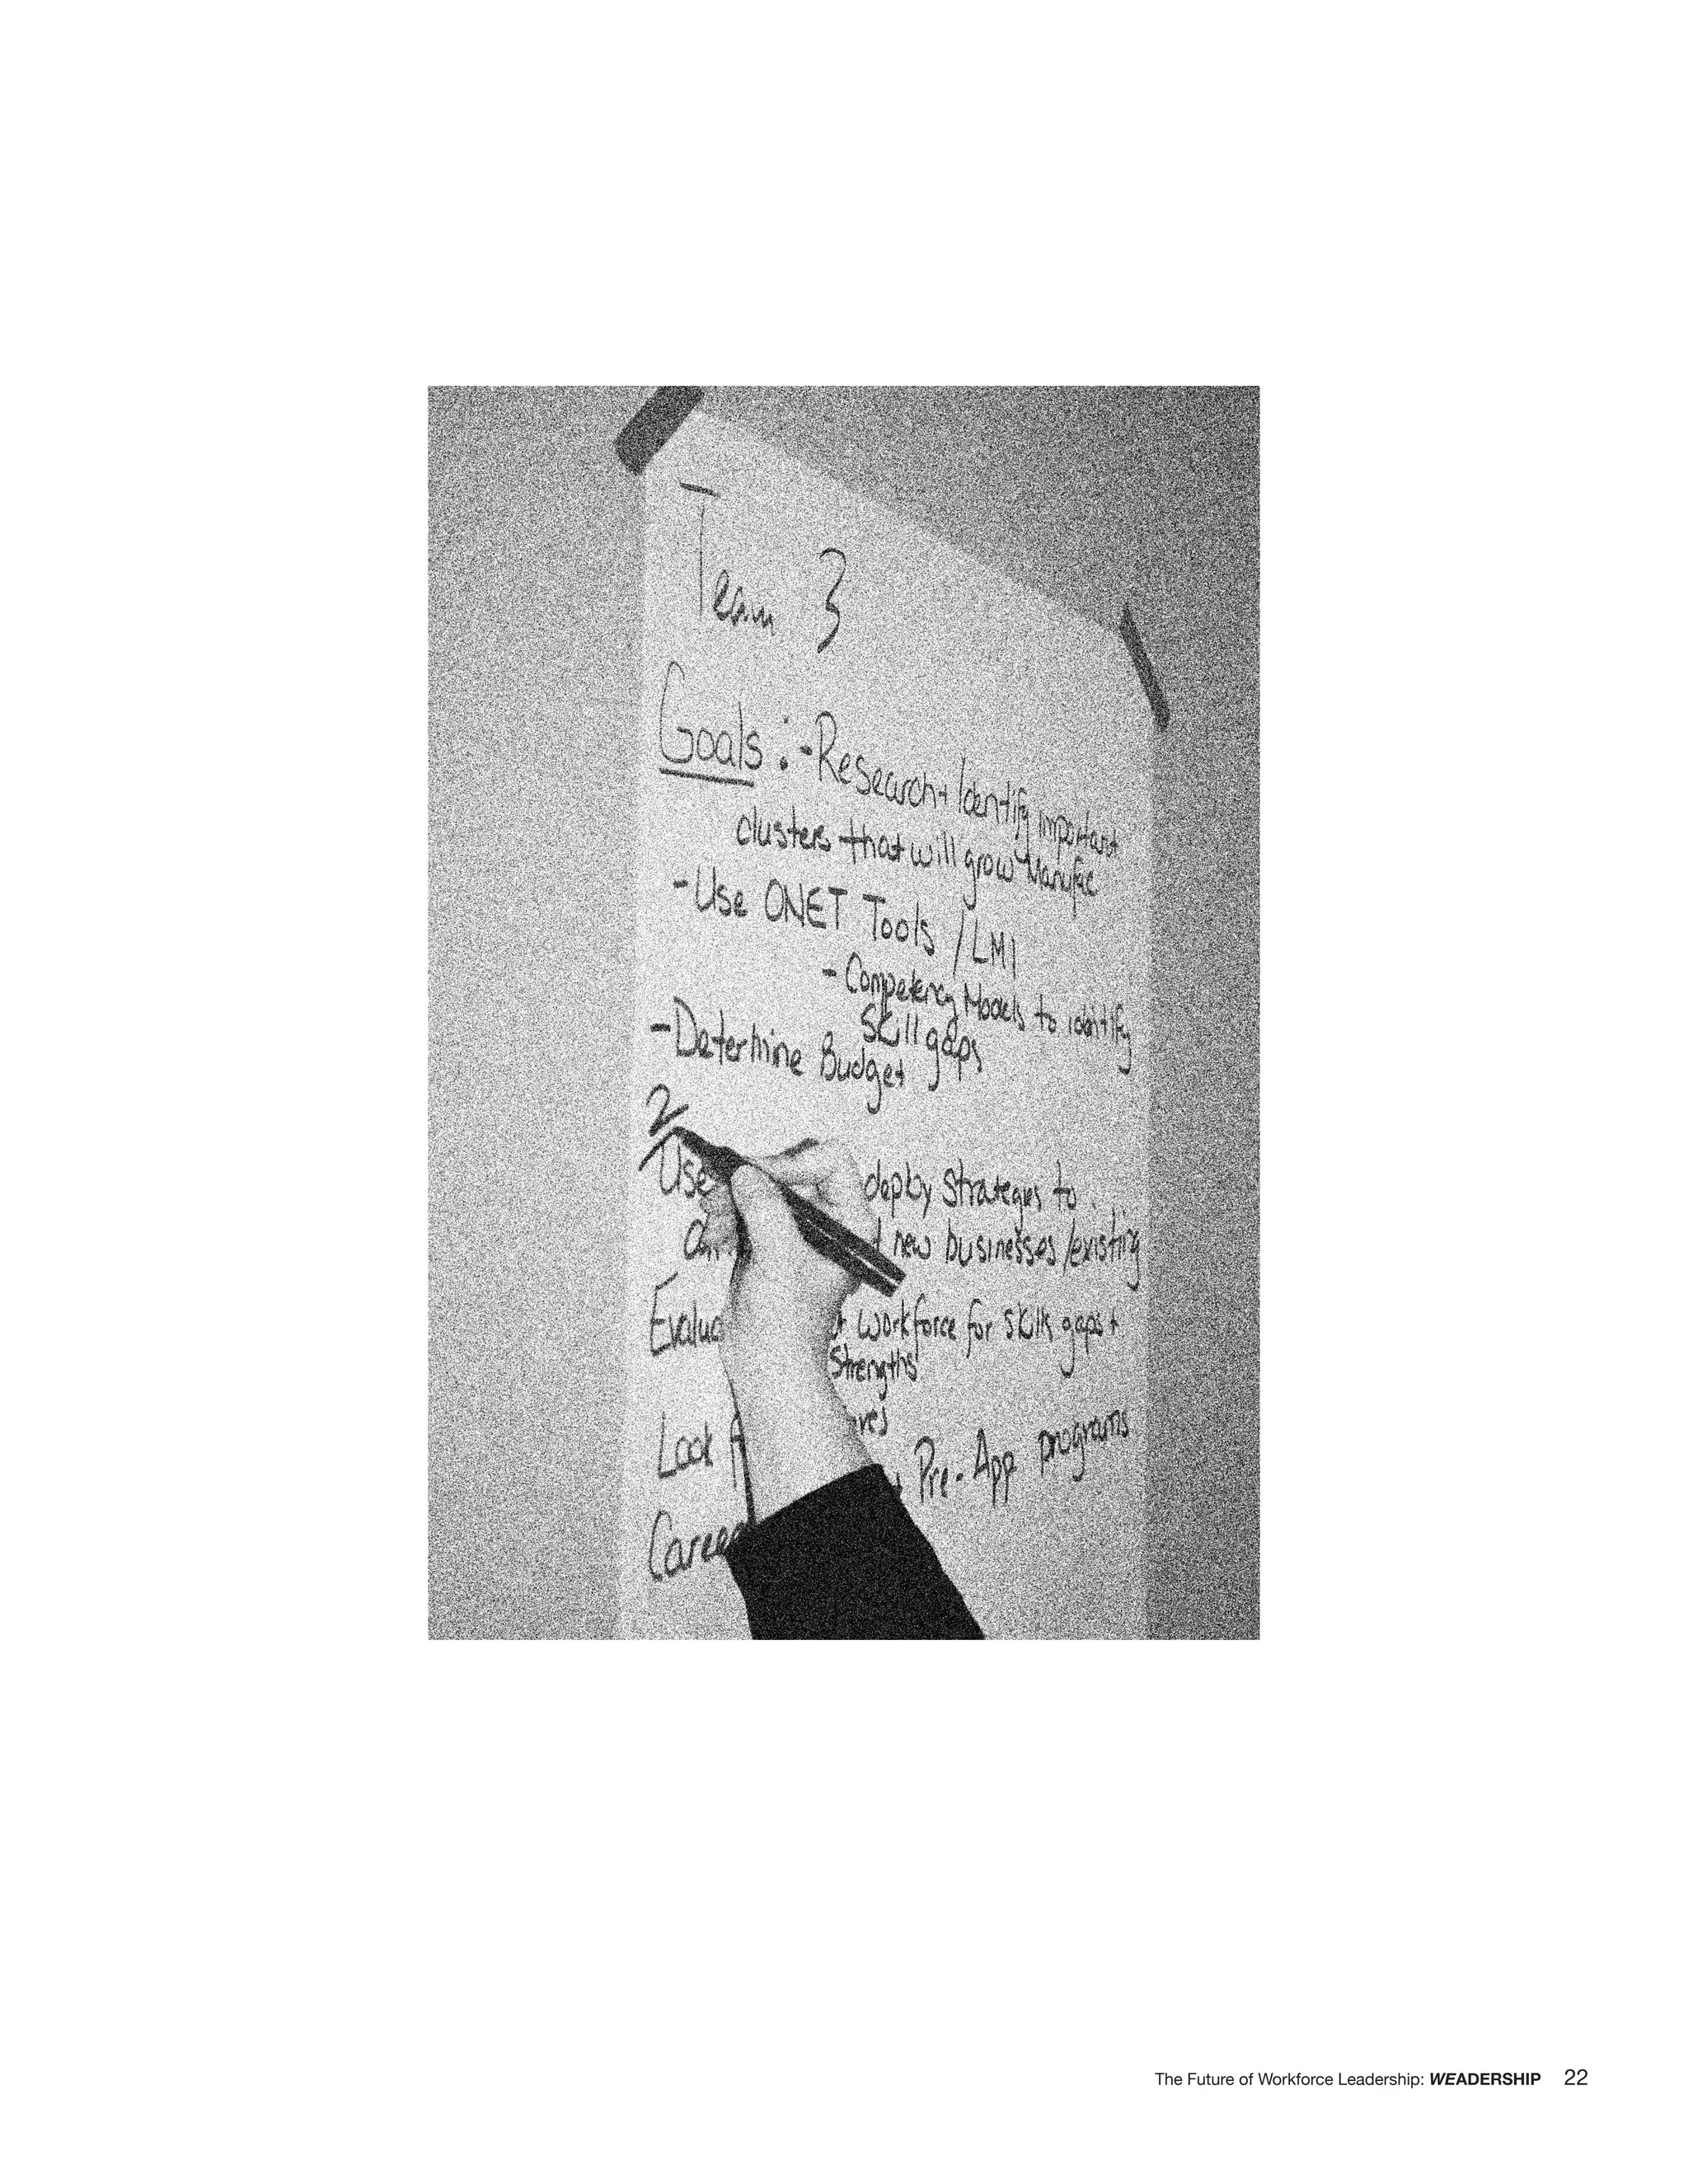 Team 3
Goals: -Research + Identify important
clusters that will grow Manufac
-Use ONET Tools / LMI
- Competency Models to identify
skill gaps
-Determine Budget
2
Use deploy strategies to
new businesses/existing
workforce for skills gaps +
strengths
Look
Pre-App programs
Career
The Future of Workforce Leadership: WEADERSHIP 22